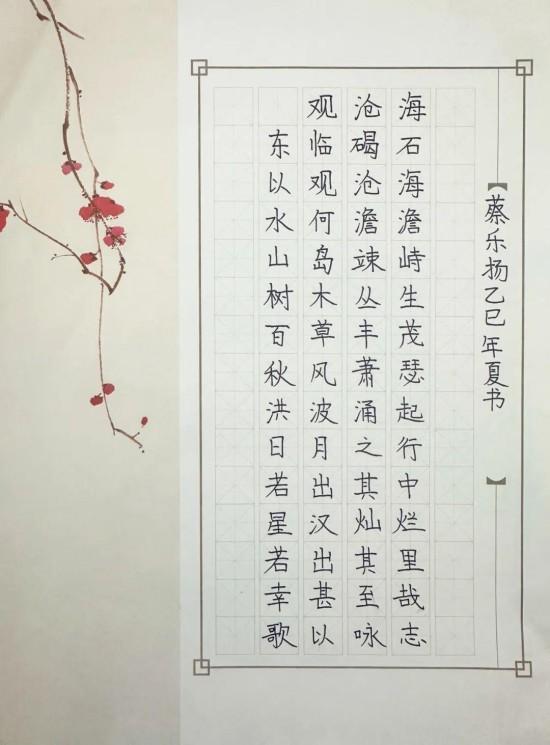 观沧海
东临碣石
以观沧海
水何澹澹
山岛竦峙
树木丛生
百草丰茂
秋风萧瑟
洪波涌起
日月之行
若出其中
星汉灿烂
若出其里
幸甚至哉
歌以咏志
蔡乐扬乙巳年夏书